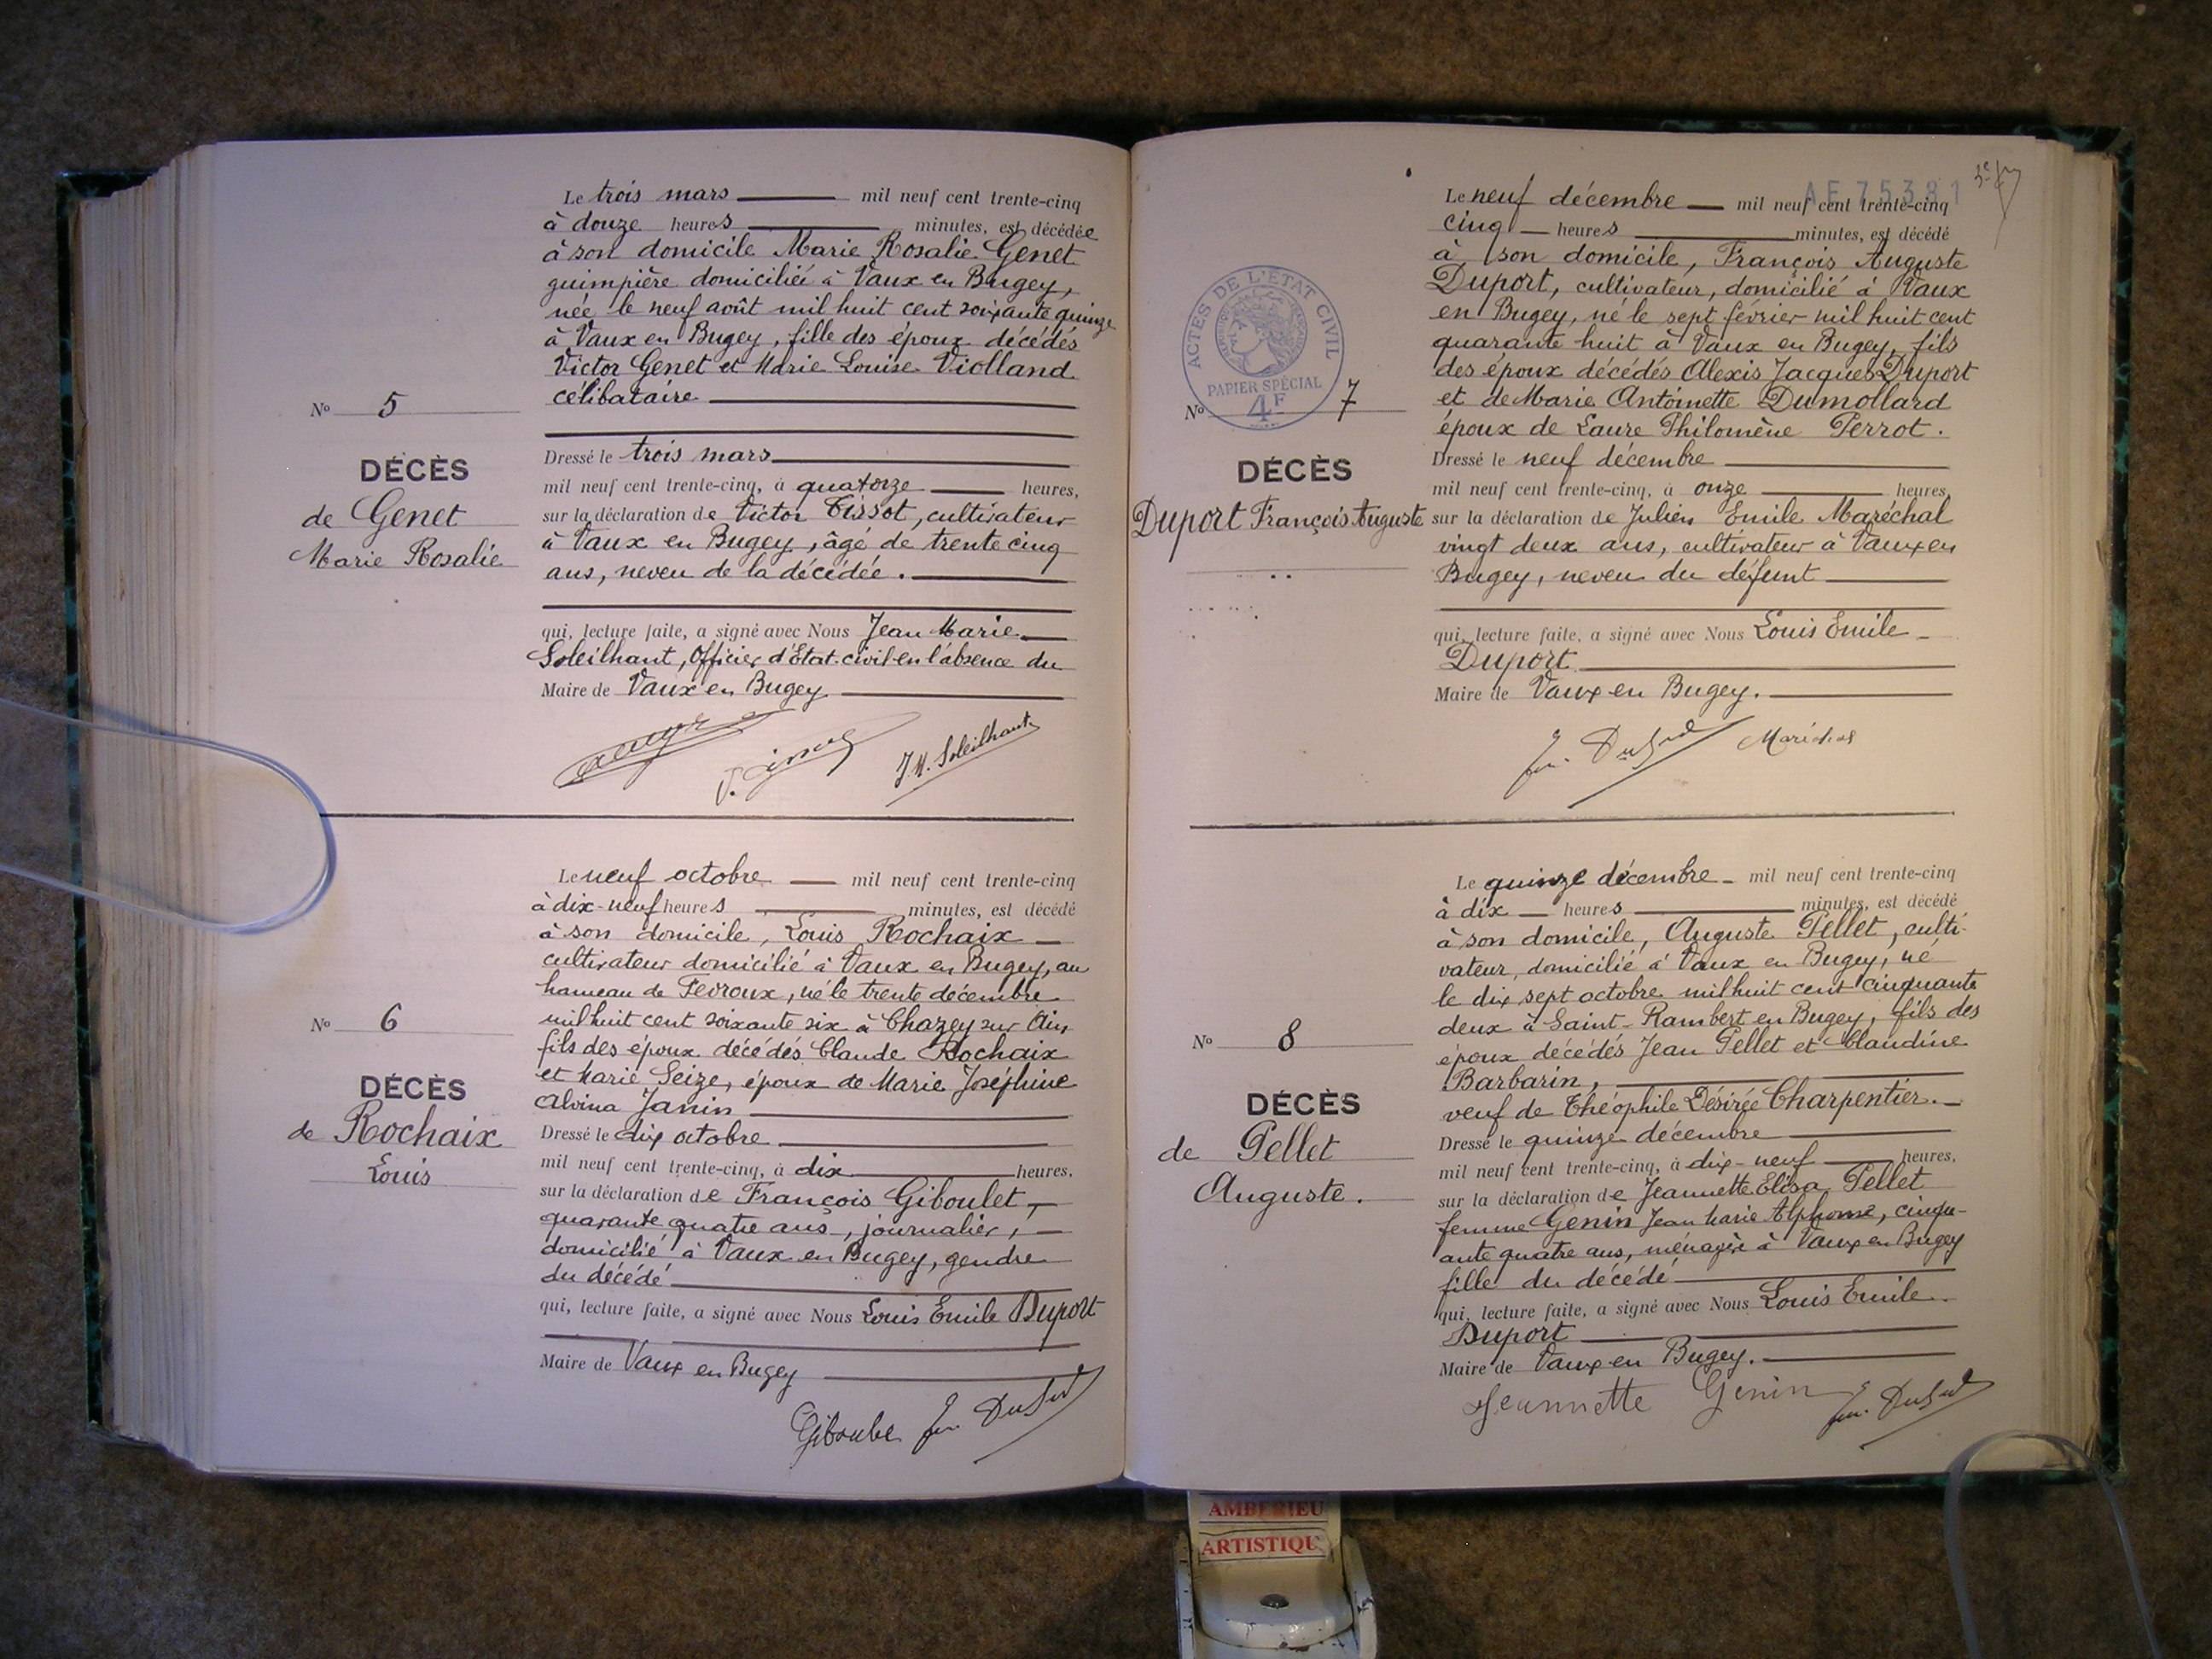 Le trois mars mil neuf cent trente-cinq
à douze heures minutes, est décédée
à son domicile Marie Rosalie Genet
guimpière domiciliée à Vaux en Bugey,
née le neuf août mil huit cent soixante quinze
à Vaux en Bugey, fille des époux décédés
Victor Genet et Marie Louise Violland
célibataire
No 5
DÉCÈS
de Genet
Marie Rosalie
Dressé le trois mars
mil neuf cent trente-cinq, à quatorze heures,
sur la déclaration de Victor Tissot, cultivateur
à Vaux en Bugey, âgé de trente cinq
ans, neveu de la décédée.
qui, lecture faite, a signé avec Nous Jean Marie
Soleilhant, Officier d'Etat-civil en l'absence du
Maire de Vaux en Bugey
J M. Soleilhant
Le neuf octobre mil neuf cent trente-cinq
à dix-neuf heures minutes, est décédé
à son domicile, Louis Rochaix
cultivateur domicilié à Vaux en Bugey, au
hameau de Fevroux, né le trente décembre
mil huit cent soixante six à Chazey sur Ain
fils des époux décédés Claude Rochaix
et Marie Seize, époux de Marie Joséphine
Alvina Janin
No 6
DÉCÈS
de Rochaix
Louis
Dressé le dix octobre
mil neuf cent trente-cinq, à dix heures,
sur la déclaration de François Giboulet,
quarante quatre ans, journalier,
domicilié à Vaux en Bugey, gendre
du décédé
qui, lecture faite, a signé avec Nous Louis Emile Duport
Maire de Vaux en Bugey
AE 75381
Le neuf décembre mil neuf cent trente-cinq
cinq heures minutes, est décédé
à son domicile, François Auguste
Duport, cultivateur, domicilié à Vaux
en Bugey, né le sept février mil huit cent
quarante huit à Vaux en Bugey, fils
des époux décédés Alexis Jacques Duport
et de Marie Antoinette Dumollard
époux de Laure Philomène Perrot.
ACTES DE L'ÉTAT CIVIL
PAPIER SPÉCIAL
4F
No 7
DÉCÈS
Duport François Auguste
Dressé le neuf décembre
mil neuf cent trente-cinq, à onze heures,
sur la déclaration de Julien Emile Maréchal
vingt deux ans, cultivateur à Vaux en
Bugey, neveu du défunt
qui, lecture faite, a signé avec Nous Louis Emile
Duport
Maire de Vaux en Bugey.
Maréchal
Le quinze décembre mil neuf cent trente-cinq
à dix heures minutes, est décédé
à son domicile, Auguste Pellet, culti-
vateur, domicilié à Vaux en Bugey, né
le dix sept octobre mil huit cent cinquante
deux à Saint-Rambert en Bugey, fils des
époux décédés Jean Pellet et Claudine
Barbarin,
veuf de Théophile Désirée Charpentier.
No 8
DÉCÈS
de Pellet
Auguste.
Dressé le quinze décembre
mil neuf cent trente-cinq, à dix-neuf heures,
sur la déclaration de Jeannette Elisa Pellet
femme Genin Jean Marie Alphonse, cinqu-
ante quatre ans, ménagère à Vaux en Bugey
fille du décédé
qui, lecture faite, a signé avec Nous Louis Emile
Duport
Maire de Vaux en Bugey.
Jeannette Genin
AMBERIEU
ARTISTIQU